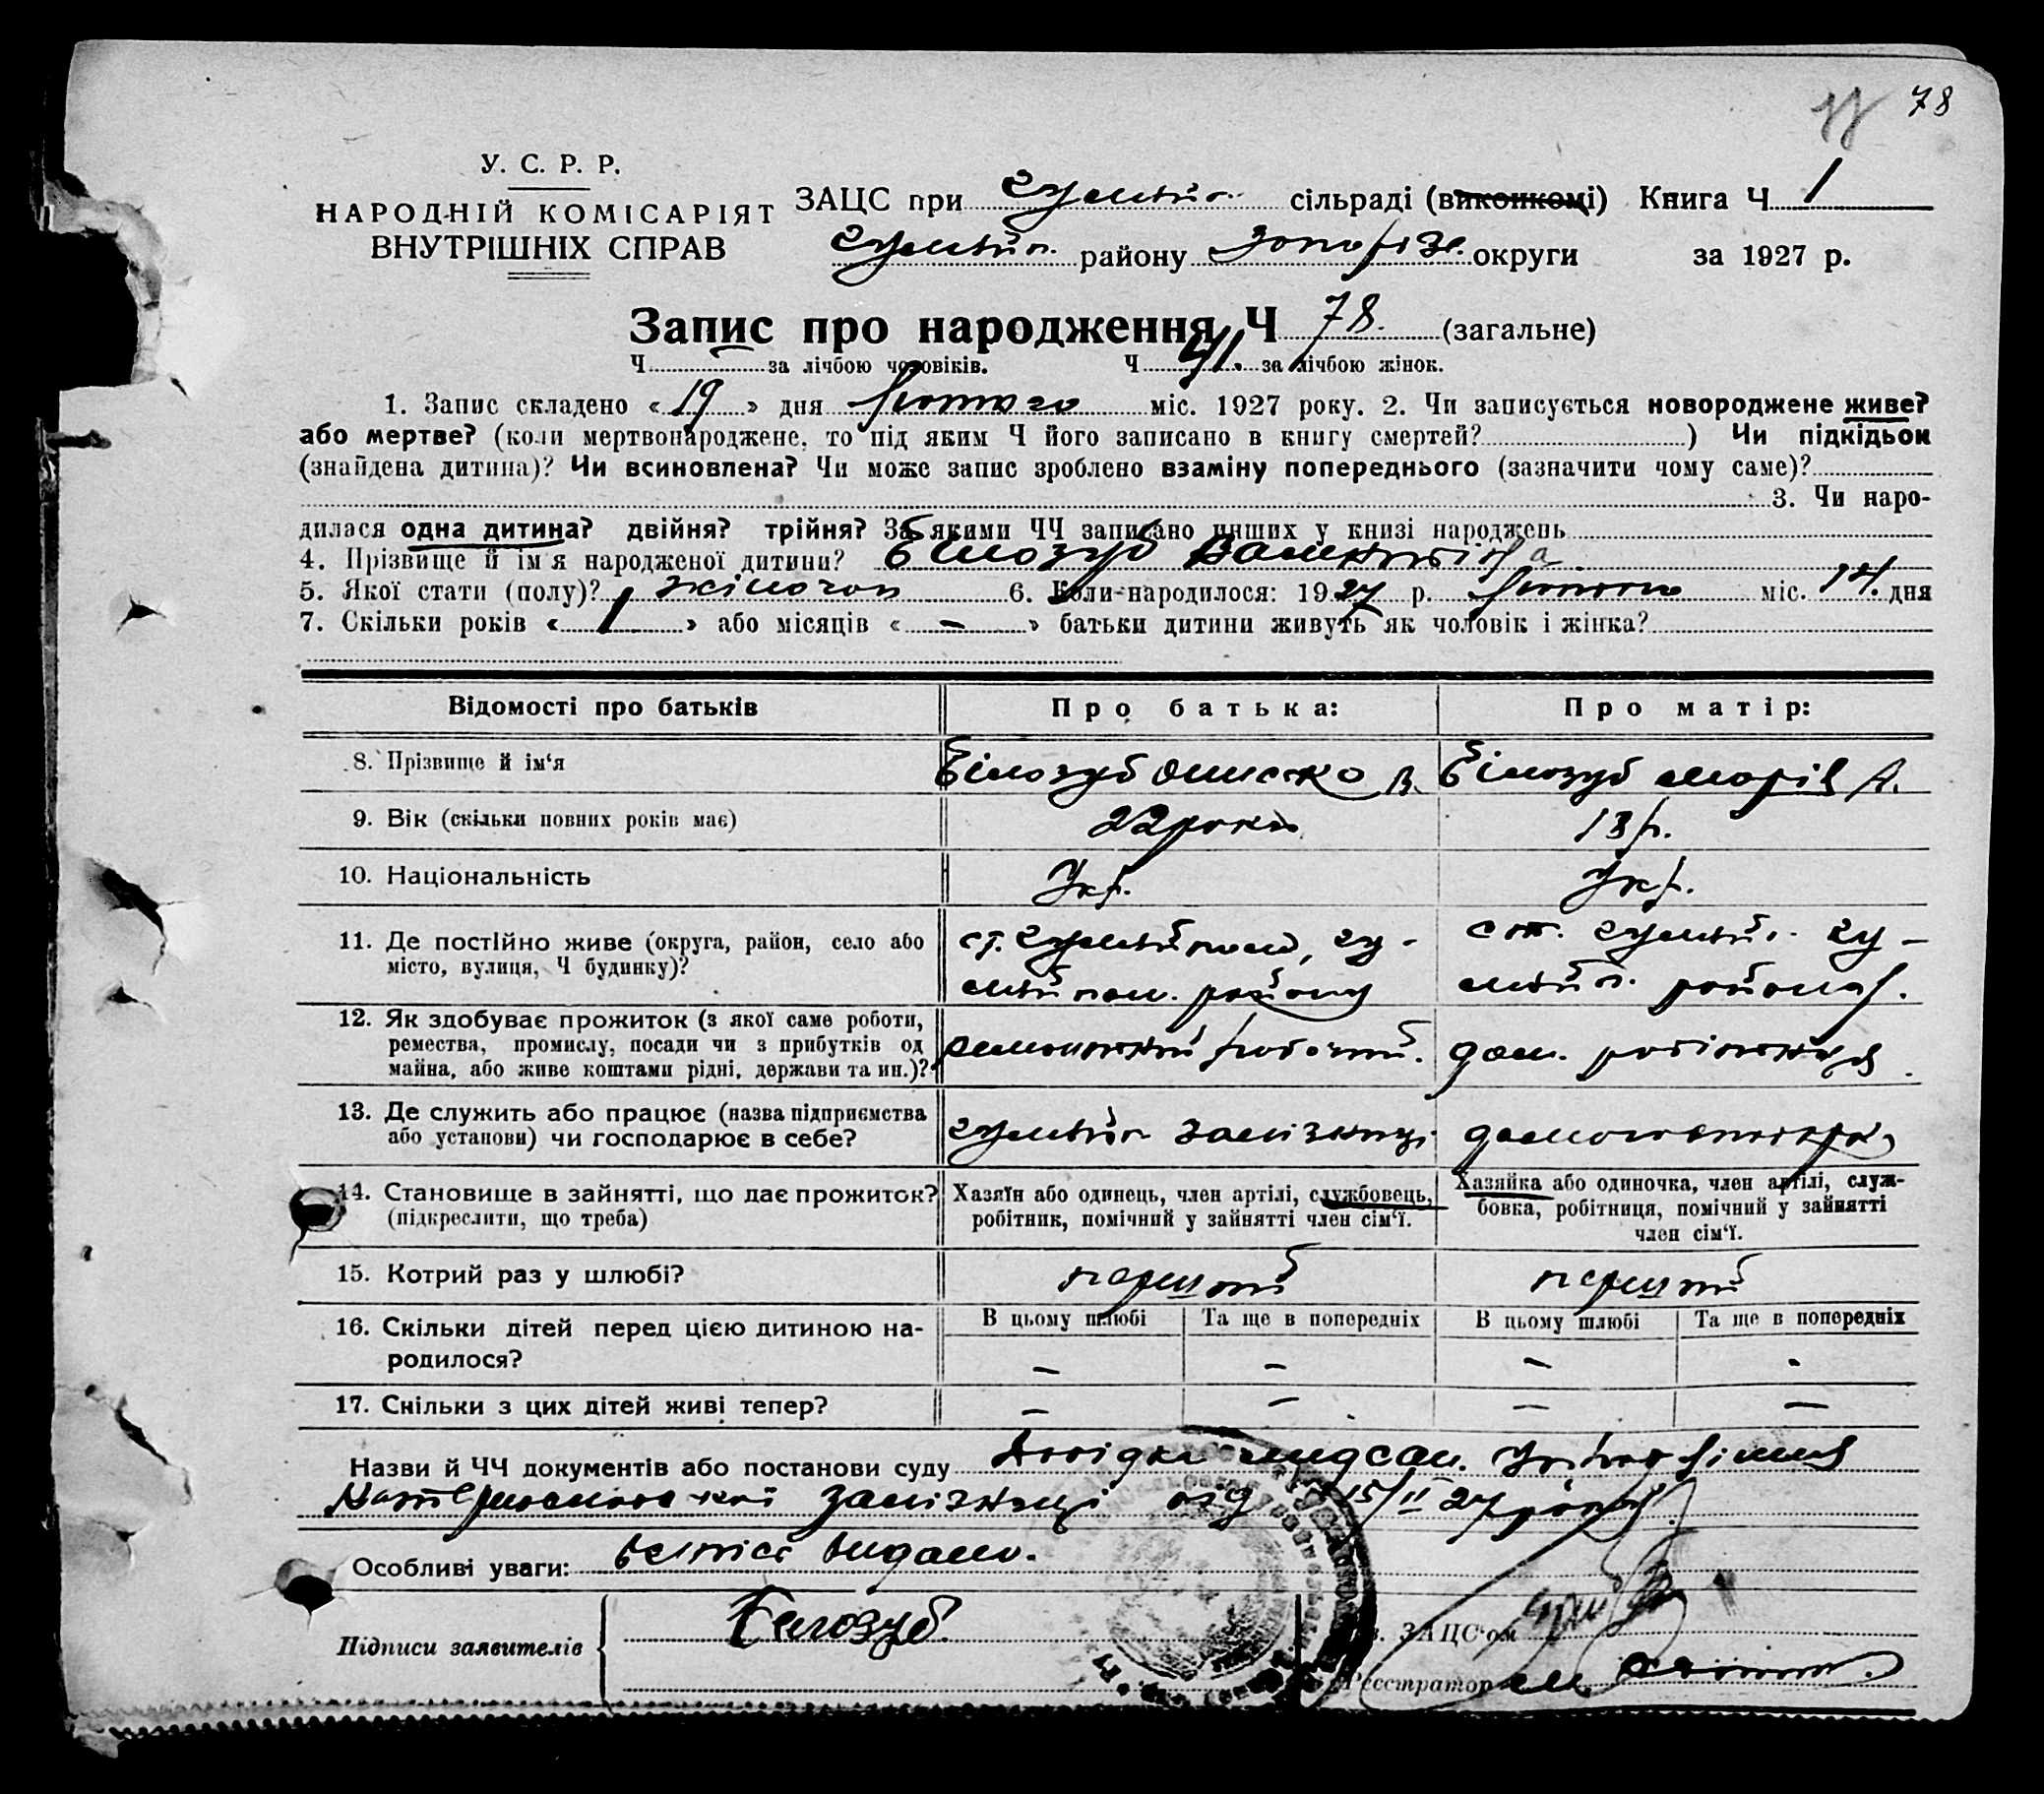 78
У. С. Р. Р.
НАРОДНІЙ КОМІСАРІЯТ
ВНУТРІШНІХ СПРАВ
ЗАЦС при Гуляйп. сільраді (виконкомі) Книга Ч 1
Гуляйп. району Запоріз. округи за 1927 р.
Запис про народження Ч 78. (загальне)
Ч за лічбою чоловіків. Ч 41. за лічбою жінок.
1. Запис складено « 19 » дня лютого міс. 1927 року. 2. Чи записується новороджене живе?
або мертве? (коли мертвонароджене, то під яким Ч його записано в книгу смертей? ) Чи підкідьок
(знайдена дитина)? Чи всиновлена? Чи може запис зроблено взаміну попереднього (зазначити чому саме)?
3. Чи наро-
дилася одна дитина? двійня? трійня? За якими ЧЧ записано инших у книзі народжень
4. Прізвище й ім'я народженої дитини? Білозуб Валентіна
5. Якої стати (полу)? жіночоп 6. Коли народилося: 1927 р. лютого міс. 14. дня
7. Скільки років « 1 » або місяців « – » батьки дитини живуть як чоловік і жінка?
Відомості про батьків Про батька: Про матір:
8. Прізвище й ім'я Білозуб Онисько В. Білозуб Марія А.
9. Вік (скільки повних років має) 22 роки 18 р.
10. Національність Укр. Укр.
11. Де постійно живе (округа, район, село або ст. Гуляйполе, Гу- ст. Гуляйп. Гу-
місто, вулиця, Ч будинку)? ляйпол. району ляйп. району.
12. Як здобуває прожиток (з якої саме роботи,
ремества, промислу, посади чи з прибутків од ремонтний робочий. дом. робітниця.
майна, або живе коштами рідні, держави та ин.)?
13. Де служить або працює (назва підприємства
або установи) чи господарює в себе? Гуляйп залізниці
14. Становище в зайнятті, що дає прожиток? Хазяїн або одинець, член артілі, службовець, Хазяйка або одиночка, член артілі, служ-
(підкреслити, що треба) робітник, помічний у зайнятті член сім'ї. бовка, робітниця, помічний у зайнятті
член сім'ї.
15. Котрий раз у шлюбі? перший перший
16. Скільки дітей перед цією дитиною на- В цьому шлюбі Та ще в попередніх В цьому шлюбі Та ще в попередніх
родилося? – – – -
17. Скільки з цих дітей живі тепер? – – – –
Назви й ЧЧ документів або постанови суду Довідка
Катерынославської залізниці від 15/II 27 року.
Особливі уваги: Витіс видано.
Підписи заявителів Белозуб
Зав. ЗАЦС'ом
Реєстратор